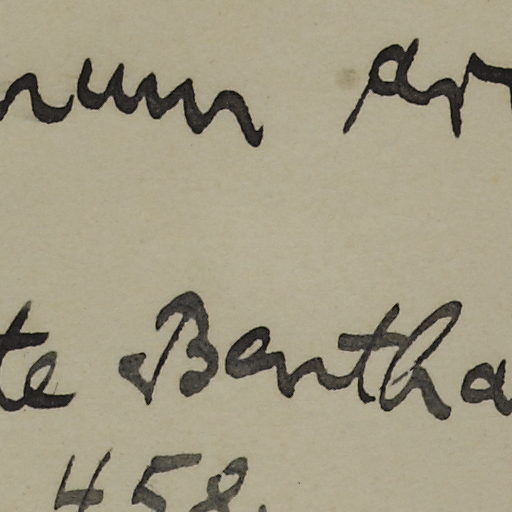 num ar
te Bentha
458.